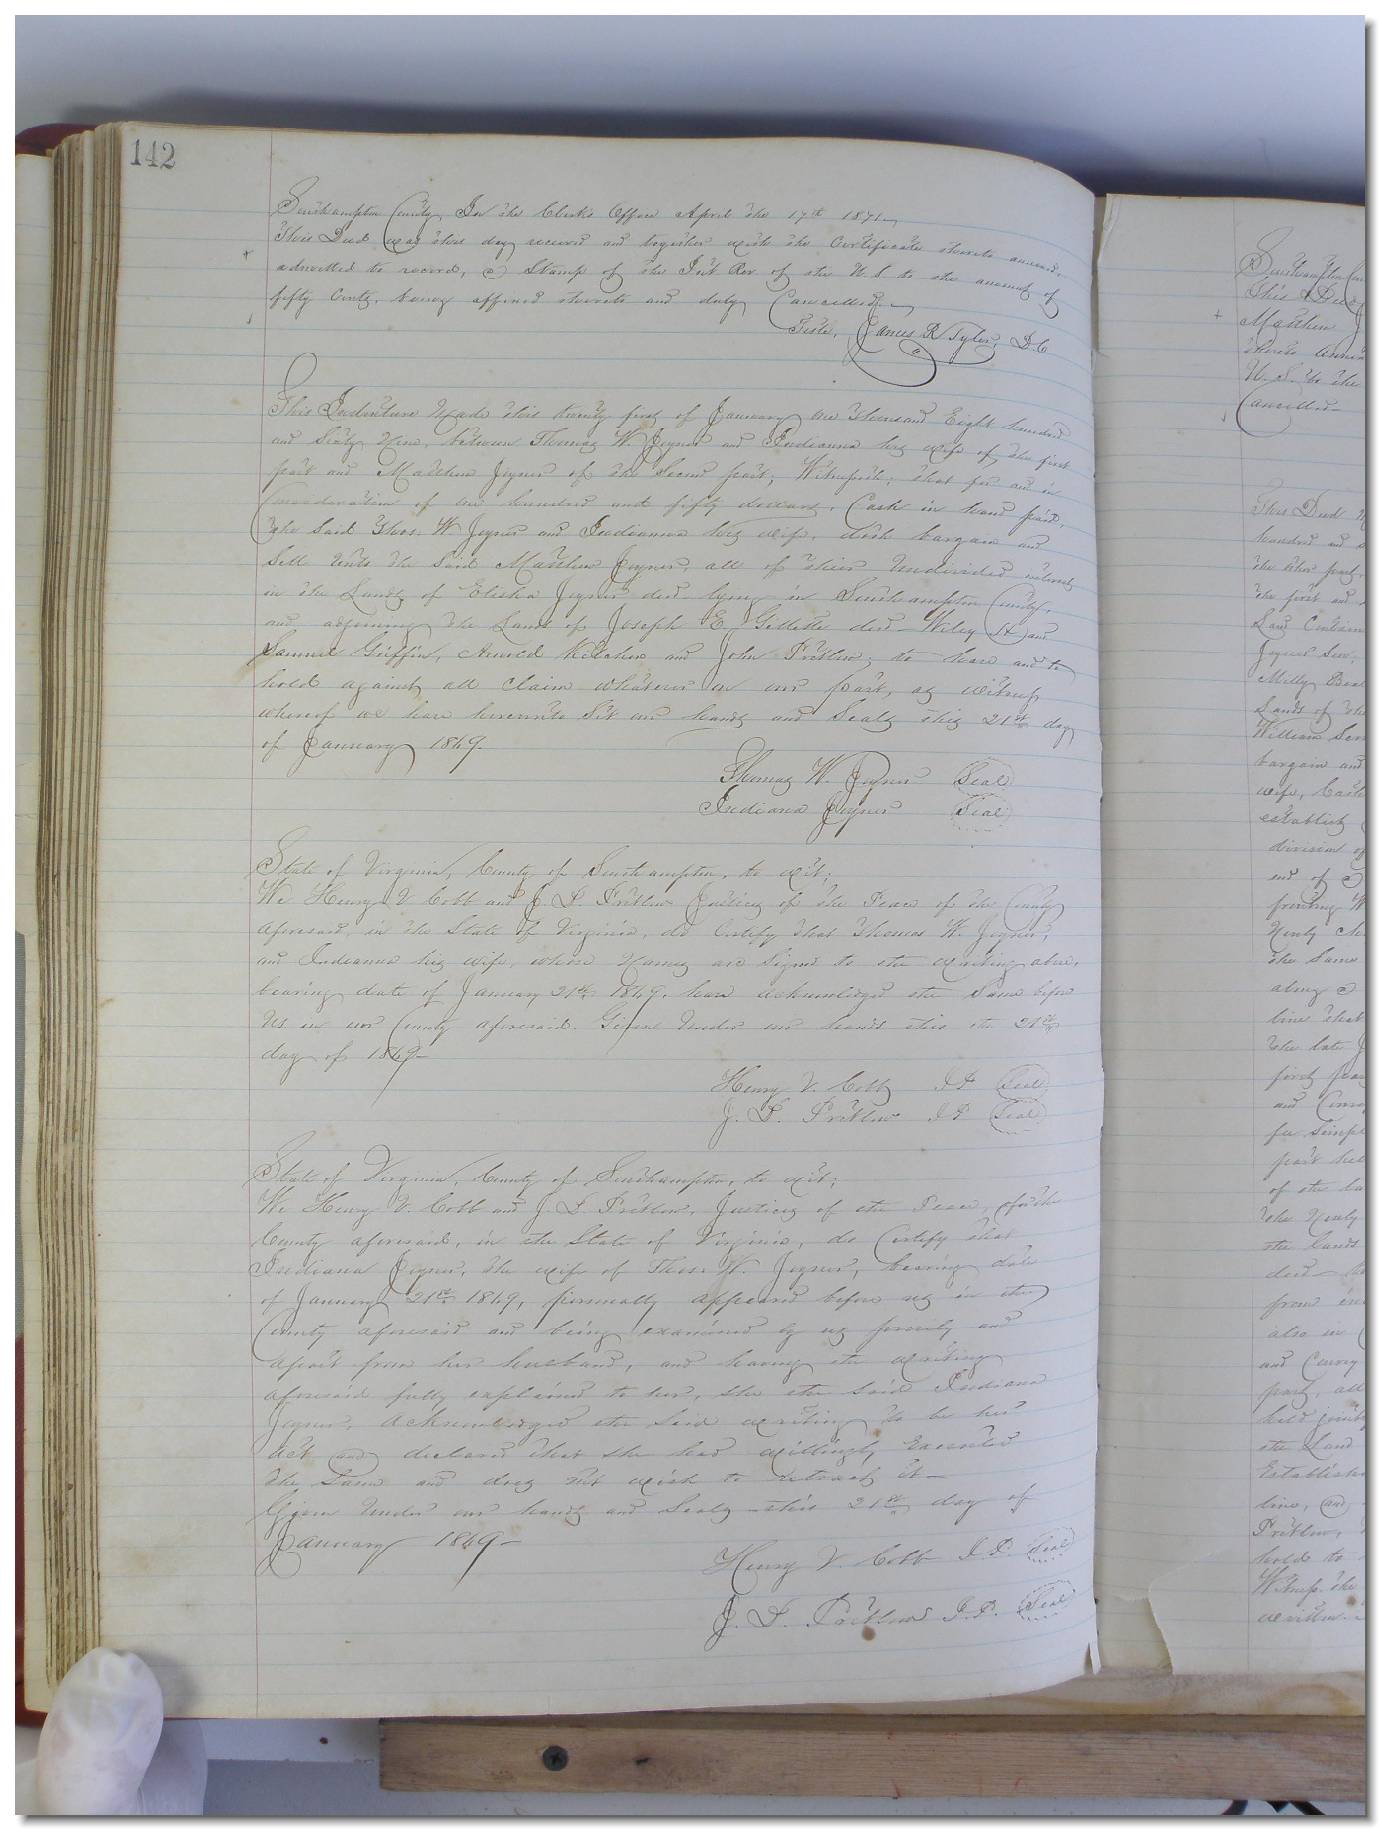 142
Southampton County, In the Clerks Office April the 17th 1871.
This Deed was this day received and together with the Certificate thereto annexed
admitted to record, a Stamp of the Int Rev of the U. S. to the amount of
fifty Cents, being affixed thereto and duly Cancelled.
Teste, James R Tyler, D.C
This Indenture Made this twenty first of January One thousand Eight hundred
and Sixty Nine, between Thomas W. Joyner and Indianna his wife of the first
part and Matthew Joyner of the Second part, Witnesseth; that for and in
Consideration of one hundred and fifty dollars, Cash in hand paid,
the Said Thos. W Joyner and Indianna his wife, doth bargain and
Sell Unto the Said Matthew Joyner, all of their Undivided interest
in the Lands of Elisha Joyner decd lying in Southampton County,
and adjoining the Lands of Joseph E. Gillette decd Wiley H and
Samuel Griffin, Arnold Kitchen and John Pretlow; to have and to
hold against all claim whatever on our part, as witness
whereof we have hereunto Set our hands and Seals this 21st day
of January 1869.
Thomas W. Joyner Seal
Indiana Joyner Seal
State of Virginia, County of Southampton, to wit;
We Henry V. Cobb and J. D. Pretlow Justices of the Peace of the County
aforesaid, in the State of Virginia, do Certify that Thomas W. Joyner,
and Indianna his wife, whose Names are Signed to the writing above,
bearing date of January 21st 1869, have acknowledged the Same before
Us in our County aforesaid. Given Under our hands this the 21st
day of 1869–
Henry V. Cobb J P Seal
J. D. Pretlow J P Seal
State of Virginia, County of Southampton, to wit;
We Henry V. Cobb and J. D. Pretlow, Justices of the Peace, of the
County aforesaid, in the State of Virginia, do Certify that
Indiana Joyner, the wife of Thos. W. Joyner, bearing date
of January 21st 1869, personally appeared before us in the
County aforesaid and being examined by us privily and
apart from her husband, and having the writing
aforesaid fully explained to her, She the Said Indiana
Joyner, acknowledged the Said writing to be her
act and declared that She had willingly Executed
the Same and does not wish to retract it–
Given Under our hands and Seals this 21st day of
January 1869–
Henry V. Cobb J.P. Seal
J. D. Pretlow J.P. Seal
Southampton
This Deed
Matthew
thereto
U. S. to the
Cancelled–
This Deed
hundred and
the other part,
the first and
Land
Joyner
Milly
Lands of
William
bargain and
wife,
establish
division of
end of a
fronting
Newly
the Same
along a
line that
the late
first
and
fee simple
part
of the
the Newly
the lands
decd
from
also in
and Convey
part, all
held jointly
the Land
Establish
line, and
Pretlow,
hold to
Witness the
written